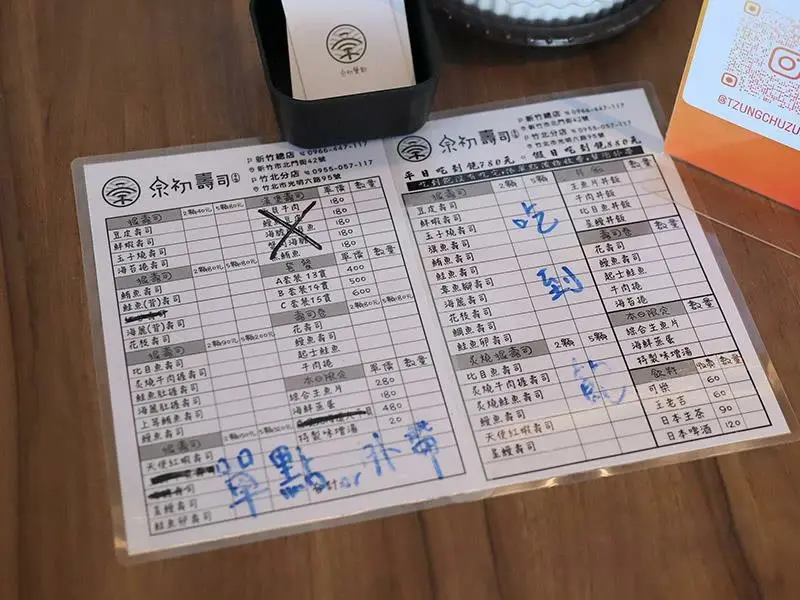 宗初壽司
新竹總店 0966-447-117
新竹市北門街42號
竹北分店 0955-057-117
竹北市光明六路95號
2顆40元 5顆80元
豆皮壽司
鮮蝦壽司
玉子燒壽司
海苔卷壽司
2顆80元 5顆180元
鮪魚壽司
鮭魚(背)壽司
海麗(背)壽司
花枝壽司
比目魚壽司
炙燒牛肉捲壽司
鮭魚肚捲壽司
海麗肚捲壽司
上等鮪魚壽司
鰻魚壽司
天使紅蝦壽司
星鰻壽司
鮭魚卵壽司
單價 數量
牛肉 180
180
180
180
鮪魚 180
套餐
A套餐 13貫 400
B套餐 14貫 500
C套餐 15貫 600
壽司卷
花壽司
鰻魚壽司
起士鮭魚
牛肉捲
本日限定 單價 數量
綜合生魚片 280
海鮮蒸蛋 180
480
特製味增湯 20
單點 外帶
宗初壽司
新竹總店 0966-447-117
新竹市北門街42號
竹北分店 0955-057-117
竹北市光明六路95號
平日吃到飽780元 假日吃到飽880元
2顆 5顆
豆皮壽司
鮮蝦壽司
玉子壽司
旗魚壽司
鮭魚壽司
章魚腳壽司
海麗壽司
花枝壽司
鯛魚壽司
鮭魚卵壽司
炙燒握壽司 2顆 5顆
比目魚壽司
炙燒牛肉壽司
炙燒鮭魚壽司
鰻魚壽司
天使紅蝦壽司
星鰻壽司
數量
生魚片丼飯
牛肉丼飯
比目魚丼飯
星鰻丼飯
壽司卷 數量
花壽司
鰻魚壽司
起士鮭魚
牛肉捲
海苔捲
本日限定 數量
綜合生魚片
海鮮蒸蛋
特製味增湯
飲料 收費 數量
可樂 60
王老吉 60
日本生茶 90
日本啤酒 120
吃到飽
@TZUNGCHUZU